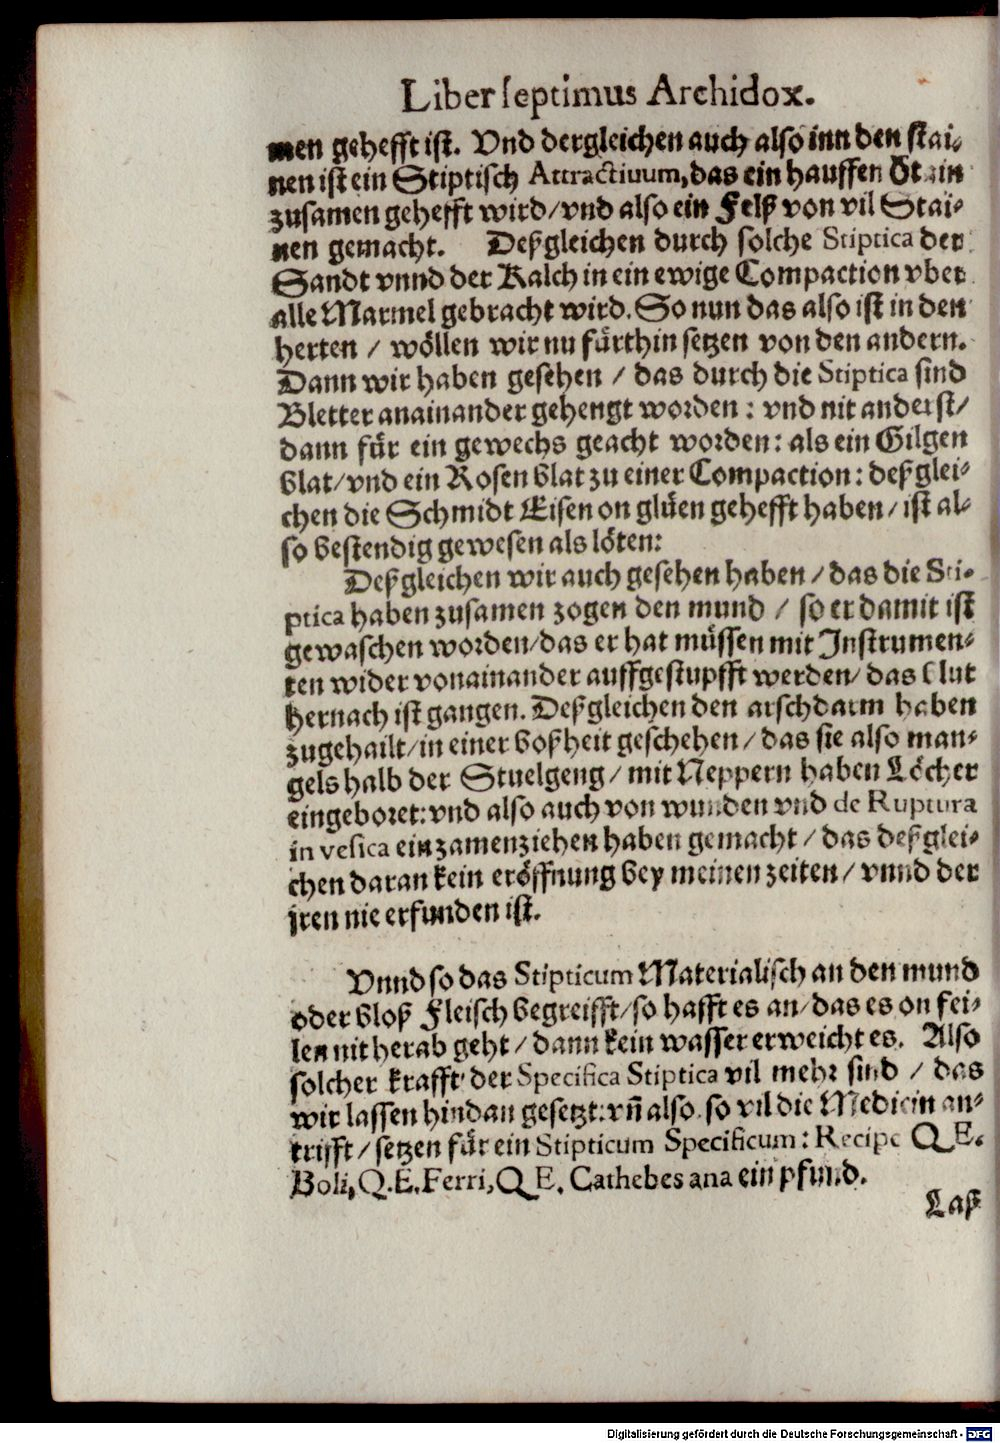 Liber septimus Archidox.
men gehefft ist. Vnd dergleichen auch also inn den stai-
nen ist ein Stiptisch Attractiuum, das ein hauffen
zusamen gehefft wird/ vnd also ein Felß von vil Stai-
nen gemacht. Deßgleichen durch solche Stiptica der
Sandt vnnd der Kalch in ein ewige Compaction vber
alle Marmel gebracht wird. So nun das also ist in den
herten / wöllen wir nu fürthin setzen von den andern.
Dann wir haben gesehen / das durch die Stiptica sind
Bletter anainander gehengt worden: vnd nit anderst/
dann für ein gewechs geacht worden: als ein Gilgen
blat/ vnd ein Rosen blat zu einer Compaction: deßglei-
chen die Schmidt Eisen on glüen gehefft haben/ ist al-
so bestendig gewesen als löten:
Deßgleichen wir auch gesehen haben/ das die Sti-
ptica haben zusamen zogen den mund / so er damit ist
gewaschen worden/ das er hat müssen mit Instrumen-
ten wider vonainander auffgestupfft werden/ das blut
hernach ist gangen. Deßgleichen den arschdarm haben
zugehailt/ in einer boßheit geschehen/ das sie also man-
gels halb der Stuelgeng/ mit Neppern haben Löcher
eingeboret: vnd also auch von wunden vnd de Ruptura
in vesica ein zamenziehen haben gemacht / das deßglei-
chen daran kein eröffnung bey meinen zeiten/ vnnd der
jren nie erfunden ist.
Vnnd so das Stipticum Materialisch an den mund
oder bloß Fleisch begreifft/ so hafft es an/ das es on fei-
len nit herab geht/ dann kein wasser erweicht es. Also
solcher krafft der Specifica Stiptica vil mehr sind / das
wir lassen hindan gesetzt: vñ also so vil die Medicin an-
trifft/ setzen für ein Stipticum Specificum: Recipe Q E.
Boli, Q. E. Ferri, Q E. Cathebes ana ein pfund.
Laß
Digitalisierung gefördert durch die Deutsche Forschungsgemeinschaft - DFG